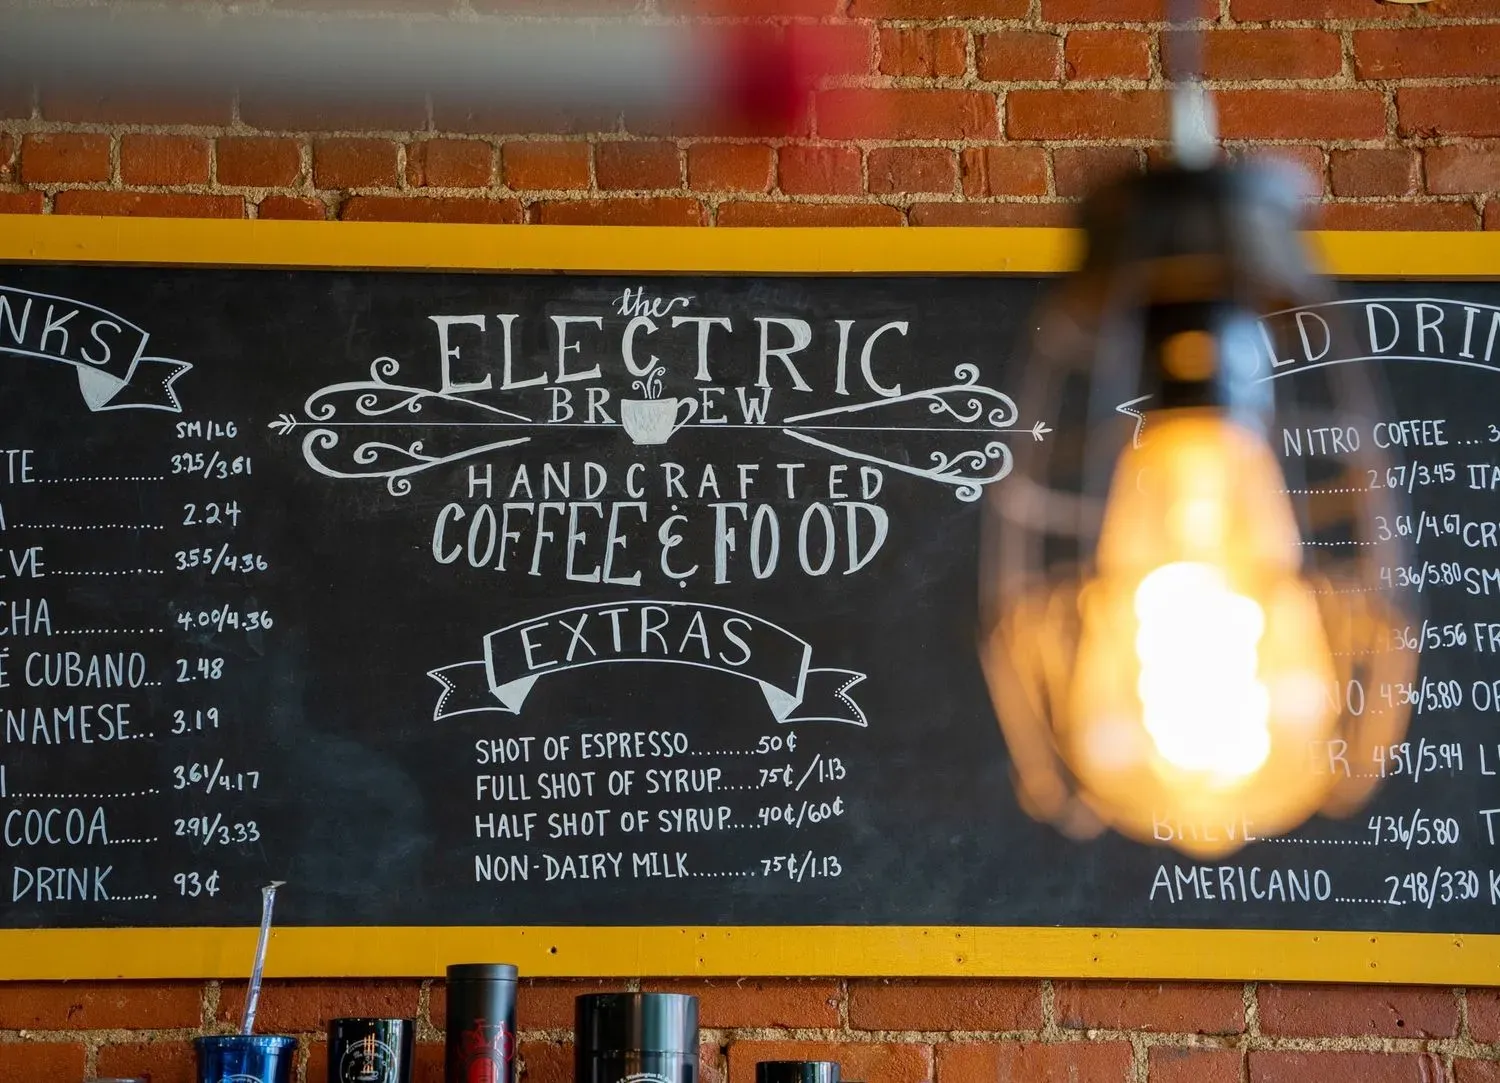 NKS
SM/LG
TTE 3.25/3.61
2.24
VE 3.55/4.36
CHA 4.00/4.36
CUBANO... 2.48
TNAMESE... 3.19
3.61/4.17
COCOA 2.91/3.33
DRINK 93¢
the
ELECTRIC
BREW
HANDCRAFTED
COFFEE & FOOD
EXTRAS
SHOT OF ESPRESSO........50¢
FULL SHOT OF SYRUP.....75¢/1.13
HALF SHOT OF SYRUP.....40¢/60¢
NON-DAIRY MILK.........75¢/1.13
LD DRIN
NITRO COFFEE .... 3
2.67/3.45 ITA
3.61/4.67 CR
4.36/5.80 SM
36/5.56 FR
NO 4.36/5.80 OR
ER 4.59/5.94 L
BREVE 4.36/5.80 T
AMERICANO 2.48/3.30 K